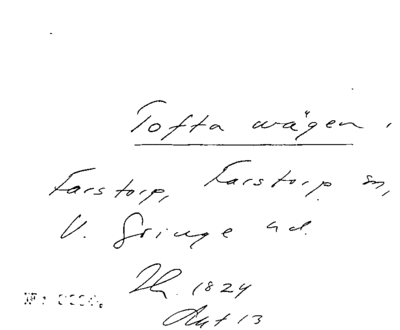 Tofta wägen.
Farstorp, Farstorp sn,
V. Göinge hd.
1824
Akt 13